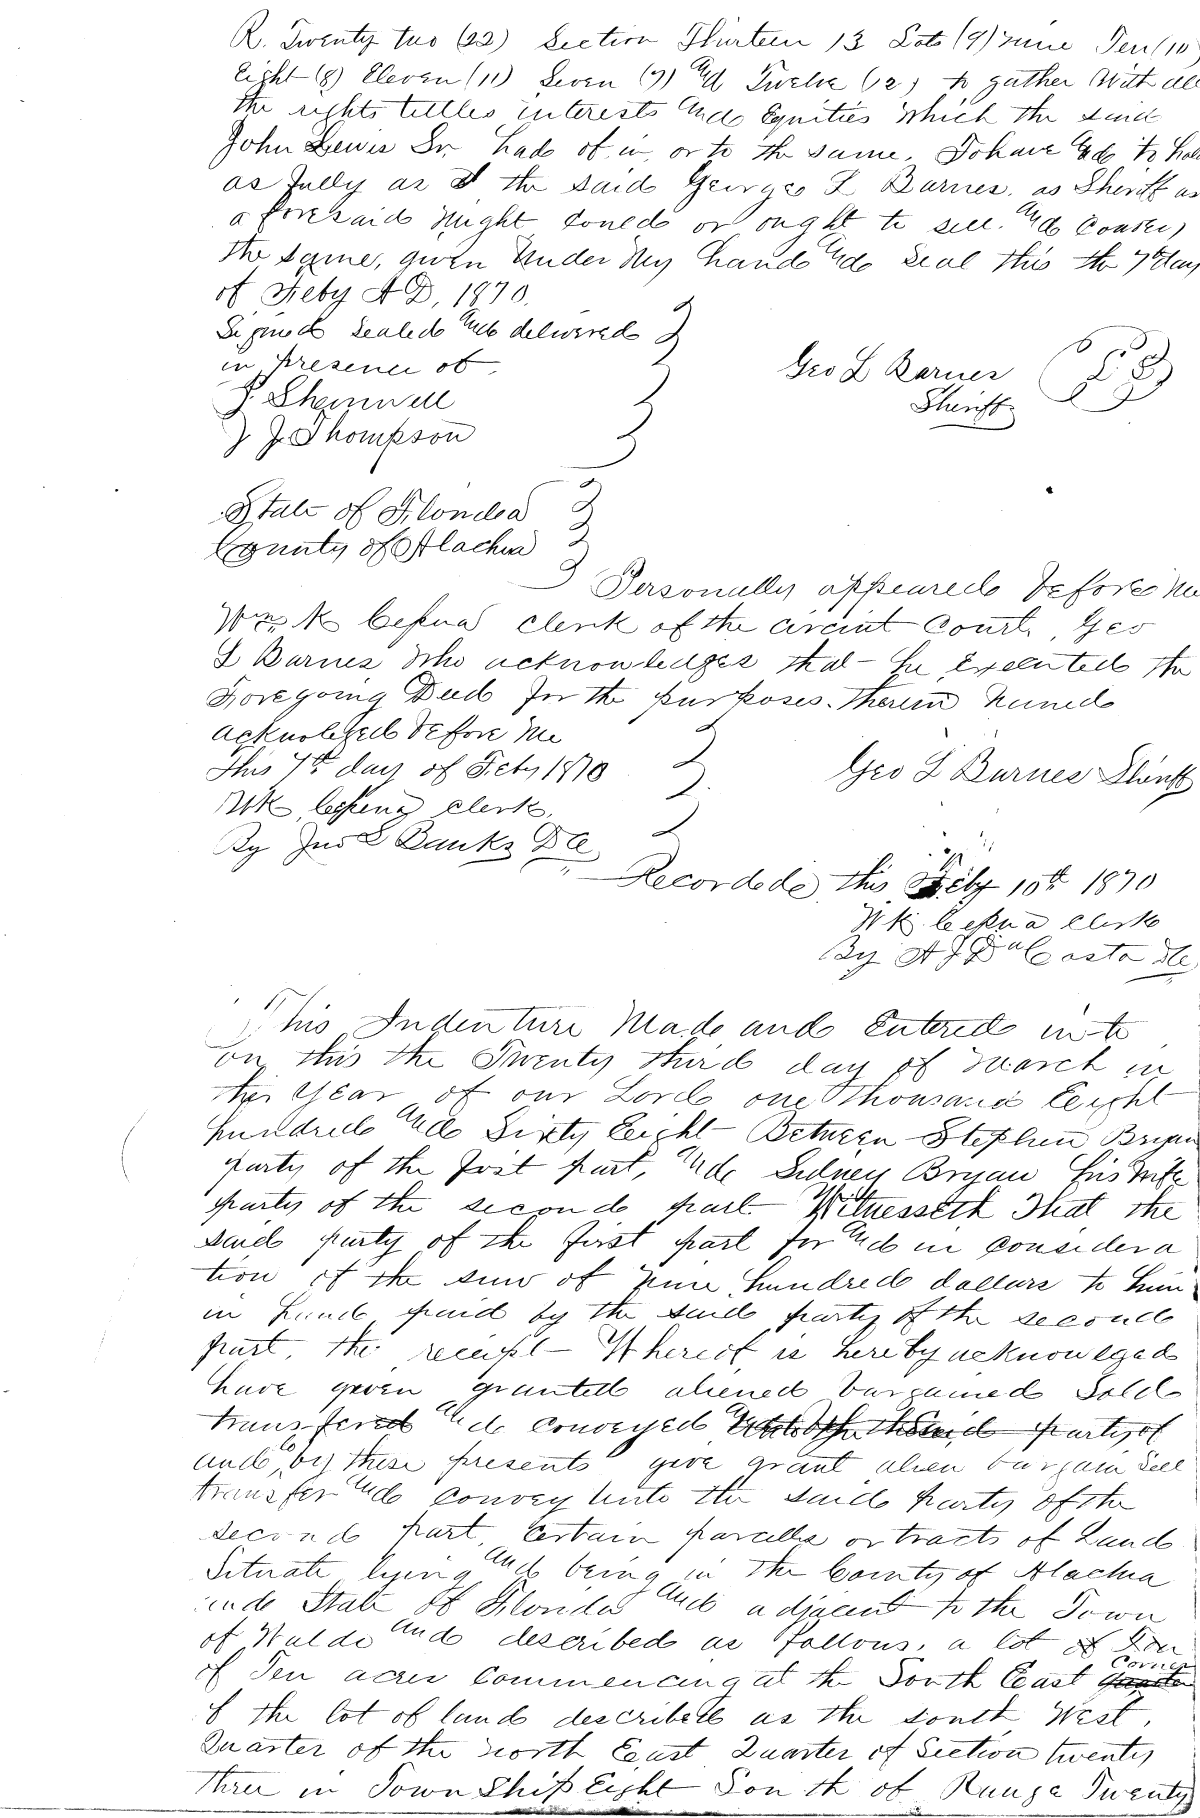 R. Twenty two (22) Section Thirteen 13 Lots (9) nine Ten (10)
Eight (8) Eleven (11) Seven (7) And Twelve (12) to gather With all
the rights tittles interests And Equities which the said
John Lewis Sr. had of in or to the same. To have And to hold
as fully as I the said George L Barnes. as Sheriff as
a foresaid might coned or ought to sell. And convey
the same, given Under My hand And Seal this the 7th day
of Feby A D, 1870.
Signed Sealed And delivered
in presence of
Geo L Barnes
Sheriff
Shemwell
J. Thompson
State of Florida
County of Alachua
Personally appeared before Me
Wm K Cessna clerk of the circuit Court, Geo
L Barnes Who acknowledges that he Executed the
Foregoing Deed for the purposes. therein Named
acknoleged before Me
This 7th day of Feby 1870
Geo L Barnes Sheriff
W K Cessna clerk,
By Jno L Banks D C
Recorded this Feby 10th 1870
W K Cessna Clerk
By A J DaCosta D C
This Indenture Made and Entered into
on this the Twenty third day of March in
the Year of our Lord one Thousand Eight
hundred And Sixty Eight Between Stephen Bryan
party of the first part, And Sidney Bryan his Wife
party of the second part Witnesseth That the
said party of the first part for And in considera
tion of the sum of nine hundred dollars to him
in hand paid by the said party of the second
part, the receipt Whereof is hereby acknowleged
have given granted aliened bargained Sold
transfered And conveyed party of
and by these presents give grant alien bargain Sell
transfer And convey Unto the said party of the
second part, certain parcells or tracts of Land
Situate lying And being in the County of Alachua
and State of Florida And adjacent to the Town
of Waldo And described as follows. a lot of Ten
of Ten acres commencing at the South East Quarter Corner
of the lot of land described as the south West
Quarter of the North East Quarter of Section twenty
three in Town Ship Eight South of Range Twenty